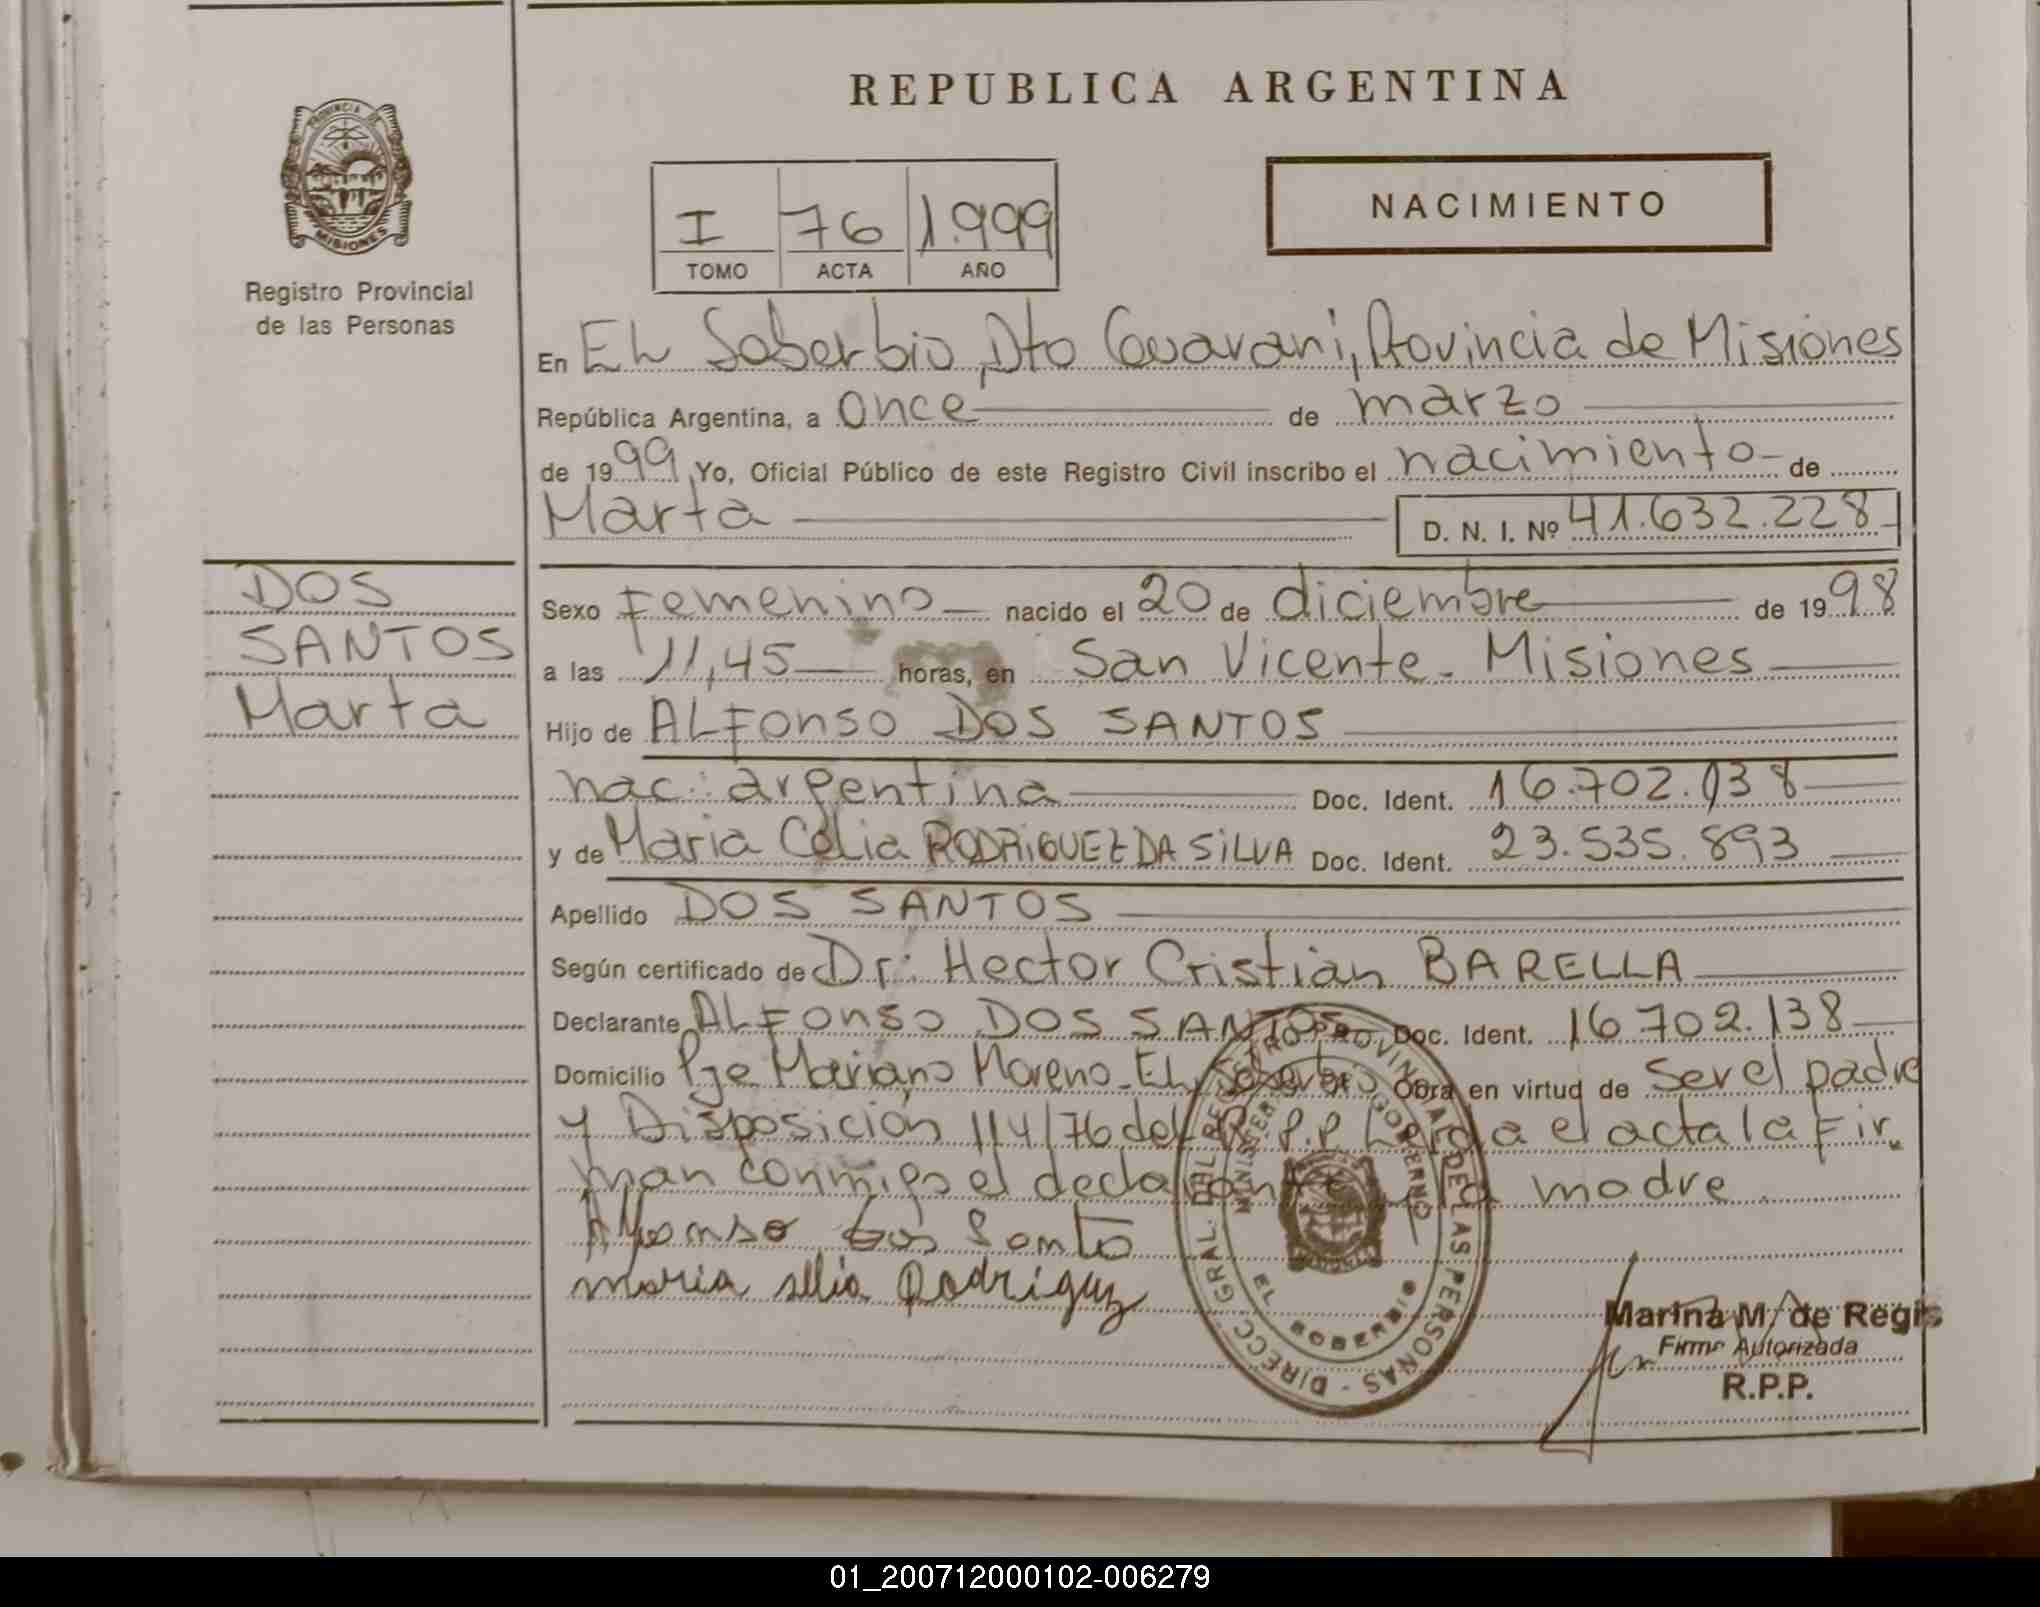 REPUBLICA ARGENTINA
PROVINCIA DE
MISIONES
Registro Provincial
de las Personas
NACIMIENTO
I 76 1.999
TOMO ACTA AÑO
En EL Soberbio, Dto Guarani, Provincia de Misiones
República Argentina, a once de marzo
de 1999 Yo, Oficial Público de este Registro Civil inscribo el nacimiento de
Marta D. N. I. Nº 41.632.228
DOS
SANTOS
Marta
Sexo Femenino nacido el 20 de diciembre de 1998
a las 11,45 horas, en San Vicente - Misiones
Hijo de ALFONSO DOS SANTOS
nac: argentina Doc. Ident. 16.702.138
y de Maria Celia RODRIGUEZ DA SILVA Doc. Ident. 23.535.893
Apellido DOS SANTOS
Según certificado de Dr: Hector Cristian BARELLA
Declarante ALFONSO DOS SANTOS Doc. Ident. 16702.138
Domicilio Pje Mariano Moreno - EL Soberbio Obra en virtud de ser el padre
y Disposición 114/76 del R.P.P. Leida el acta la Fir
man conmigo el declarante y la madre
Alfonso dos Santo
maria selia Rodriguez
DIRECC. GRAL. DEL REGISTRO PROVINCIAL DE LAS PERSONAS -
MINISTERIO GOBIERNO
EL SOBERBIO
Marina M. de Regis
Firma Autorizada
R.P.P.
01_200712000102-006279